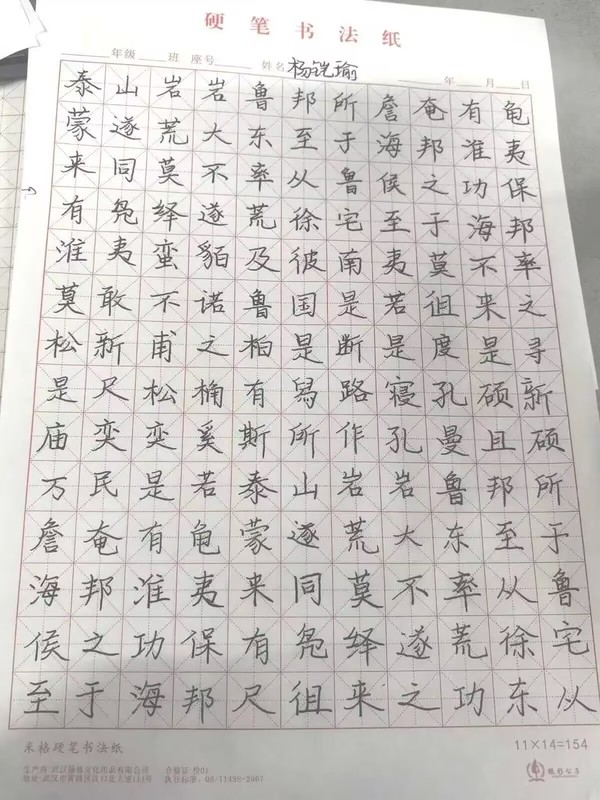 硬笔书法纸
年级 班 座号 姓名 杨铠瑜 年 月 日
泰山岩岩鲁邦所詹奄有龟
蒙遂荒大东至于海邦淮夷
来同莫不率从鲁侯之功保
有凫绎遂荒徐宅至于海邦
淮夷蛮貊及彼南夷莫不率
莫敢不诺鲁国是若徂来之
松新甫之柏是断是度是寻
是尺松桷有舄路寝孔硕新
庙奕奕奚斯所作孔曼且硕
万民是若泰山岩岩鲁邦所
詹奄有龟蒙遂荒大东至于
海邦淮夷来同莫不率从鲁
侯之功保有凫绎遂荒徐宅
至于海邦尺徂来之功东从
米格硬笔书法纸
11×14=154